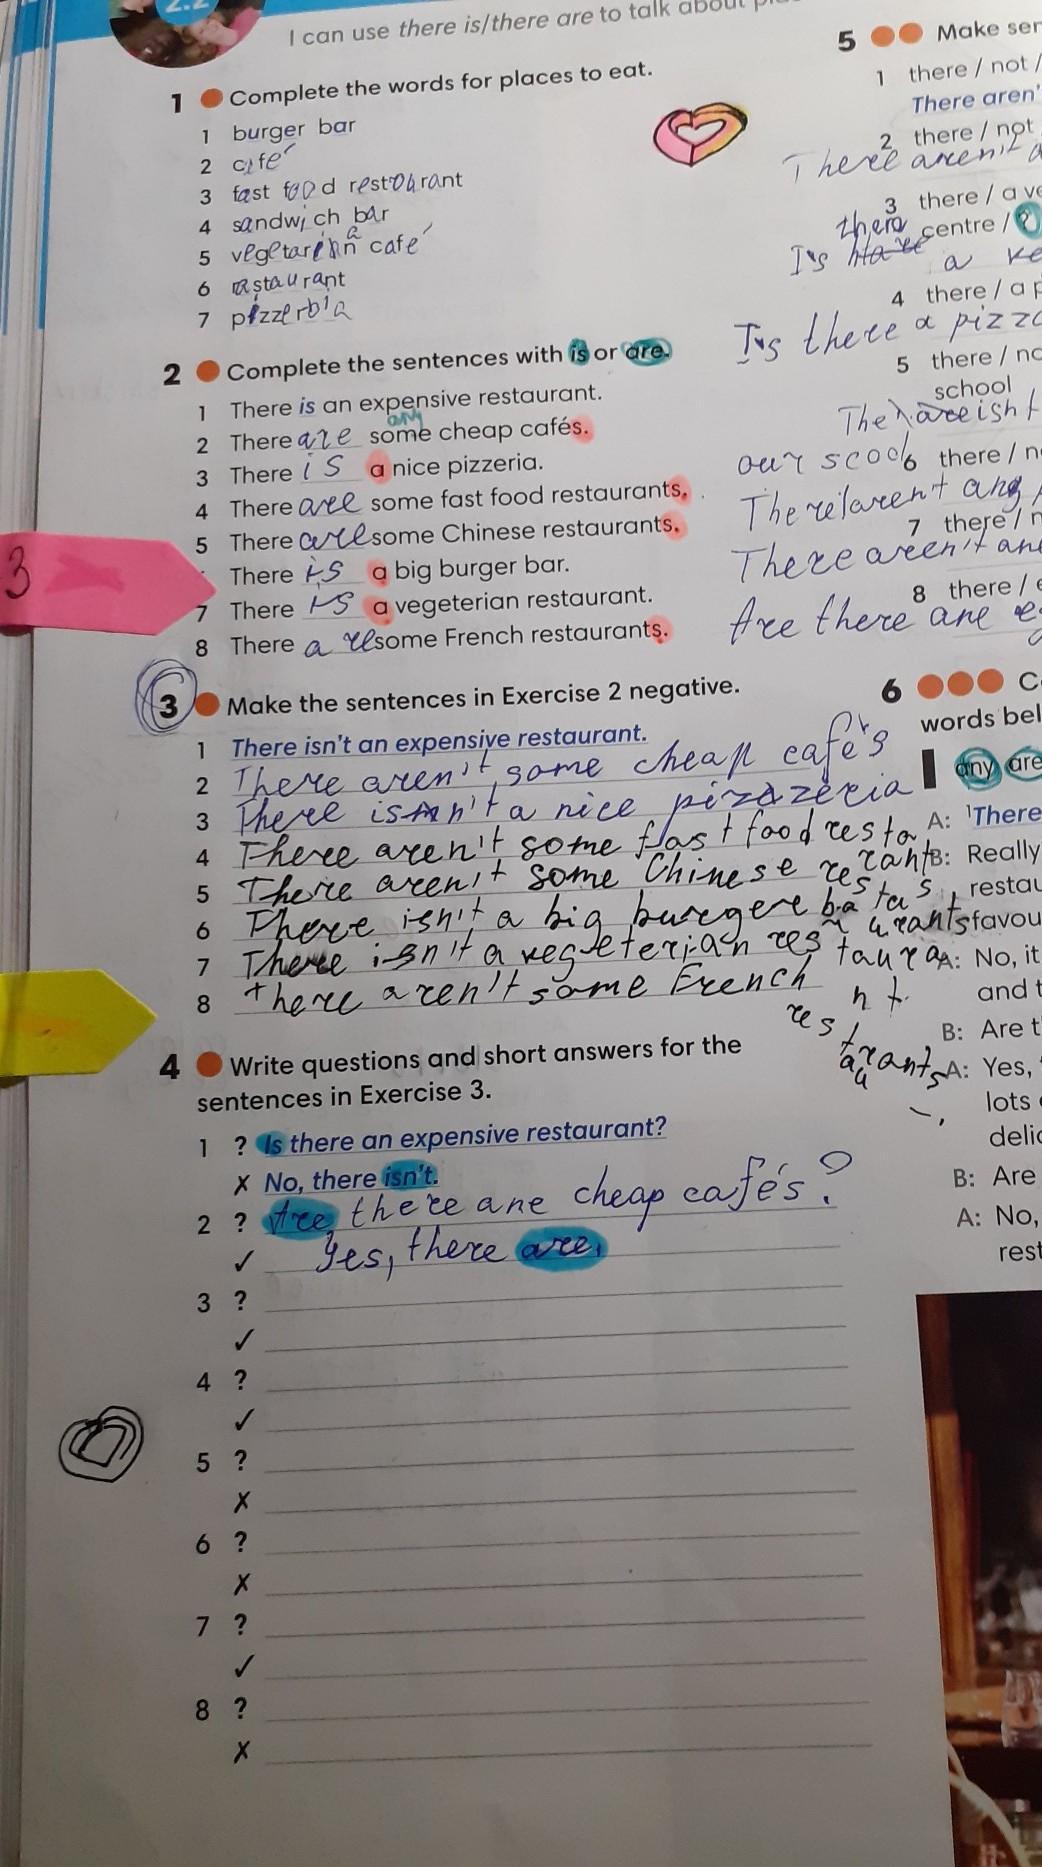 2.2
I can use there is/there are to talk about
1 Complete the words for places to eat.
1 burger bar
2 cafe´
3 fast food restourant
4 sandwich bar
5 vegetarian cafe´
6 restaurant
7 pizzeria
2 Complete the sentences with is or are.
1 There is an expensive restaurant.
any
2 There are some cheap cafés.
3 There is a nice pizzeria.
4 There are some fast food restaurants.
5 There are some Chinese restaurants.
There is a big burger bar.
7 There is a vegeterian restaurant.
8 There are some French restaurants.
3
3 Make the sentences in Exercise 2 negative.
1 There isn't an expensive restaurant.
2 There aren't some cheap cafe's
3 There isn't a nice
4 There aren't some fast food resta
urants
5 There aren't some Chinese res
taurants
6 There isn't a big burgere bar
7 There isn't a vegeterian restaura
nt.
8 there aren't some French
restaurants
4 Write questions and short answers for the
sentences in Exercise 3.
1 ? Is there an expensive restaurant?
✗ No, there isn't.
2 ? Are there are cheap cafés?
✓ Yes, there are.
3 ?
✓
4 ?
✓
5 ?
✗
6 ?
✗
7 ?
✓
8 ?
✗
5 Make
1 there / not /
There aren'
2 there / not
There aren't
3 there / a
there centre / ?
Is a
4 there / a
Is there a
5 there /
school
our scool
6 there /
There arent any
7 there /
There aren't
8 there /
Are there are
6
words
any are
A: 1There
B: Really
A: No, it
and
B: Are
A: Yes,
lots
B: Are
A: No,